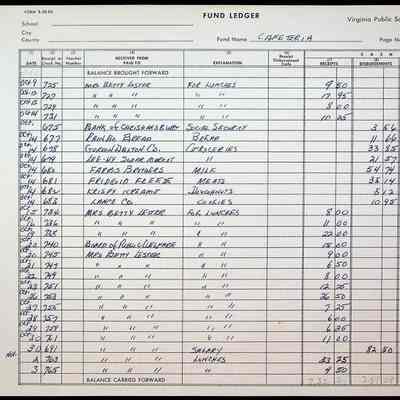 FUND LEDGER
Virginia Public Sc
School
City
County
Fund Name CAFETERIA
Page No
DATE Receipt or Check No. Voucher Number RECEIVED FROM PAID TO EXPLANATION RECEIPTS DISBURSEMENTS
BALANCE BROUGHT FORWARD
Oct 9 725 Mrs Betty Lester For Lunches 9 50
727 " " " " " 17 95
729 " " " " " 8 00
731 " " " " " 10 25
675 Bank of Christiansburg Social Security 3 56
14 677 Rainbo Bread Bread 11 66
14 678 Gordon Dalton Co. Groceries 33 85
14 679 Lee-Hy Super Market " " 21 57
14 680 Farris Brothers Milk 54 74
14 681 Frigid Freeze Meats 35 14
14 682 Krispy Kreame Doughnuts 8 12
14 683 Lance Co. Cookies 10 95
15 734 Mrs Betty Lester For Lunches 8 00
16 736 " " " " " 11 00
19 738 " " " " " 22 00
20 740 Board of Public Welfare " " 15 00
20 745 Mrs Betty Lester " " 9 00
21 747 " " " " " 6 50
22 749 " " " " " 8 00
23 751 " " " " " 12 75
26 753 " " " " " 26 50
27 755 " " " " " 7 25
28 757 " " " " " 6 00
29 759 " " " " " 6 25
30 761 " " " " " 11 00
30 691 Salary 82 50
Nov. 2 763 " " " Lunches 23 25
3 765 " " " " " 4 50
BALANCE CARRIED FORWARD